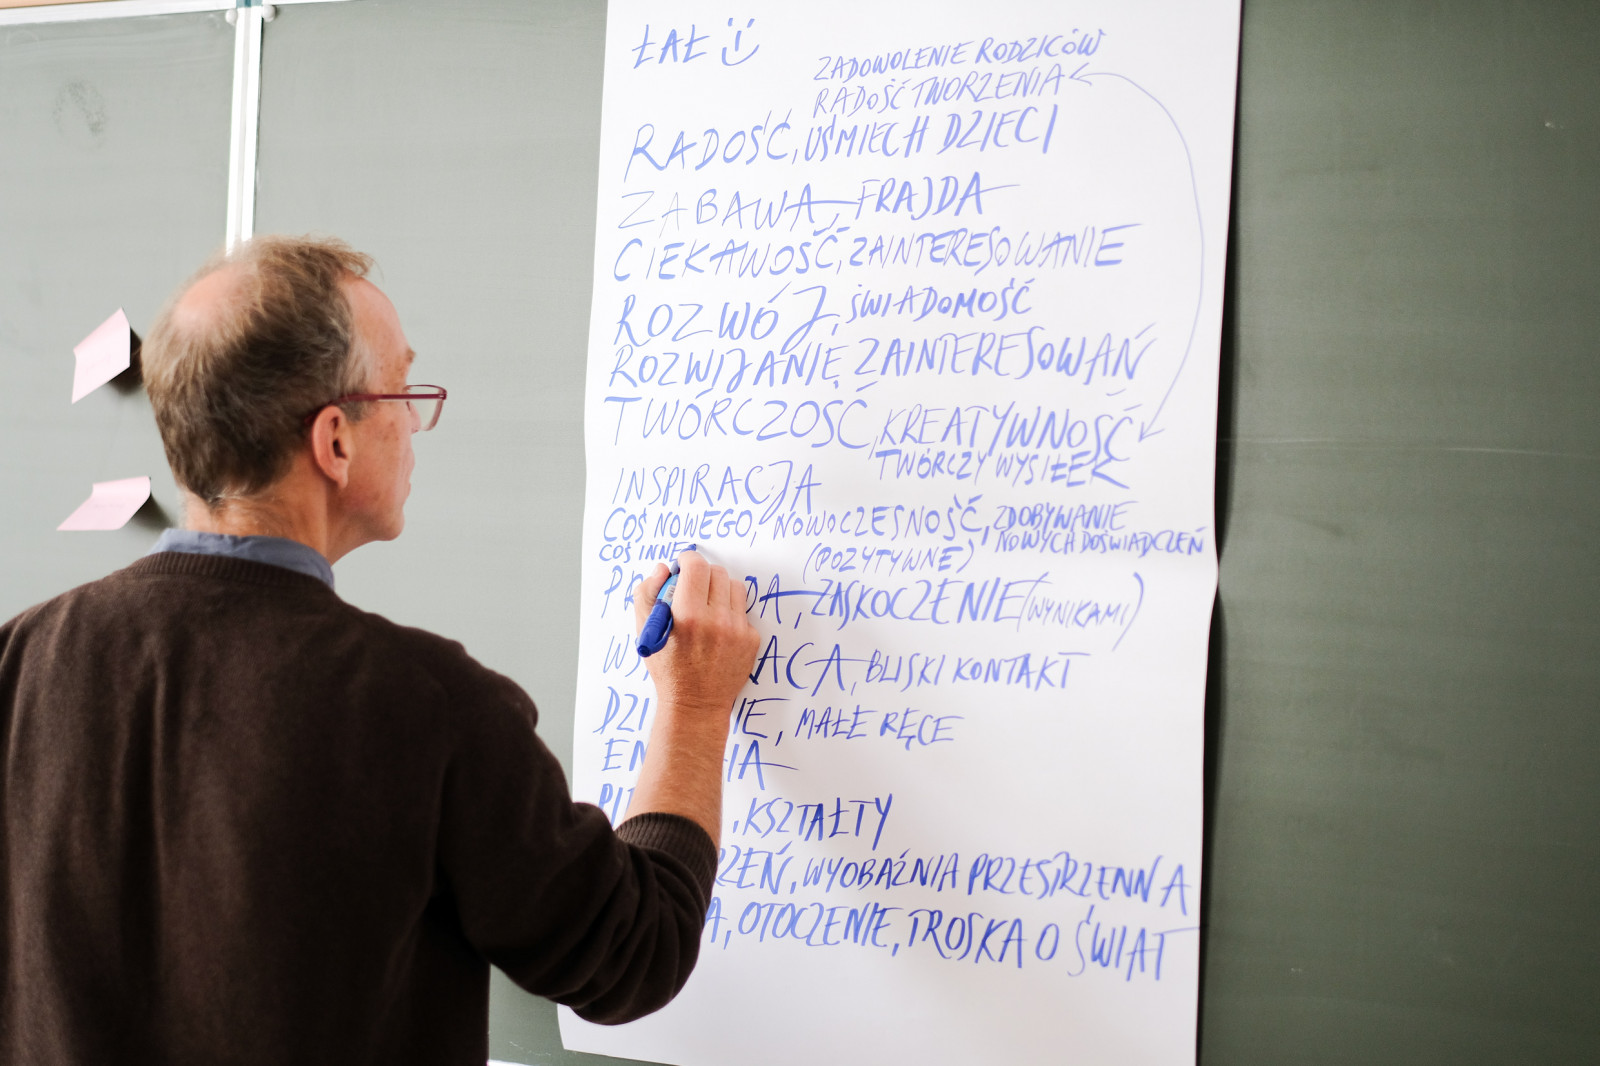 ŁAŁ
ZADOWOLENIE RODZICÓW
RADOŚĆ TWORZENIA
RADOŚĆ, UŚMIECH DZIECI
ZABAWA, FRAJDA
CIEKAWOŚĆ, ZAINTERESOWANIE
ROZWÓJ, ŚWIADOMOŚĆ
ROZWIJANIE ZAINTERESOWAŃ
TWÓRCZOŚĆ, KREATYWNOŚĆ
TWÓRCZY WYSIŁEK
INSPIRACJA
COŚ NOWEGO, NOWOCZESNOŚĆ, ZDOBYWANIE
NOWYCH DOŚWIADCZEŃ
COŚ INNE
(POZYTYWNE)
ZASKOCZENIE (WYNIKAMI)
BLISKI KONTAKT
MAŁE RĘCE
KSZTAŁTY
WYOBAŹNIA PRZESTRZENNA
OTOCZENIE, TROSKA O ŚWIAT